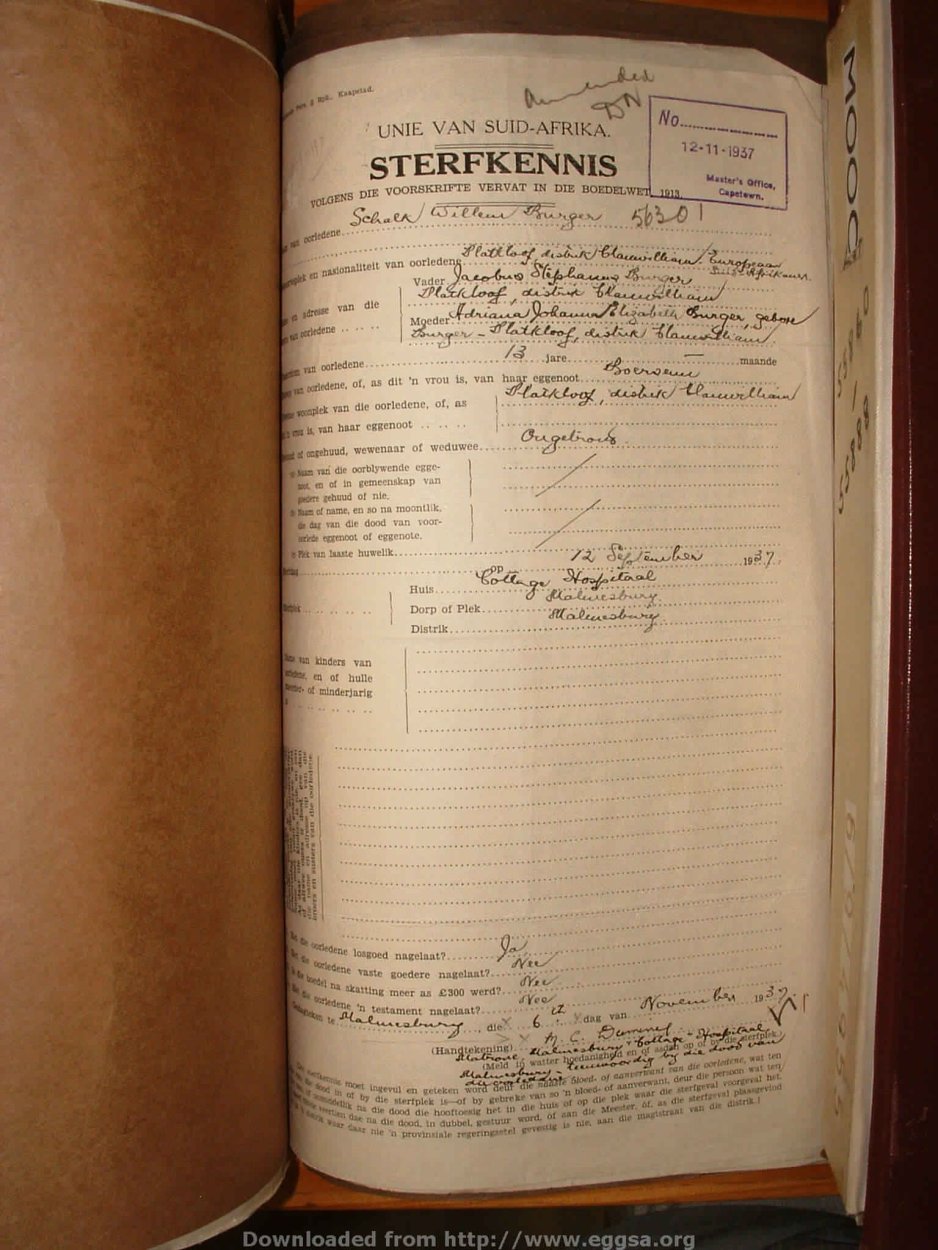 Kaapstad.
Amended
UNIE VAN SUID-AFRIKA.
STERFKENNIS
VOLGENS DIE VOORSKRIFTE VERVAT IN DIE BOEDELWET, 1913.
No.
12-11-1937
Master's Office,
Capetown.
MOOC
Schalk Willem Burger 56301
van oorledene
en nasionaliteit van oorledene Platkloof, distrik Clanwilliam. Europeaan
Suid-Afrikaner.
Vader Jacobus Stephanus Burger
en adresse van die Platkloof, distrik Clanwilliam
van oorledene Moeder Adriana Johanna Elizabeth Burger, gebore
Burger - Platkloof, distrik Clanwilliam
van oorledene 13 jare — maande
van oorledene, of, as dit 'n vrou is, van haar eggenoot Boerseun
woonplek van die oorledene, of, as Platkloof, distrik Clanwilliam
vrou is, van haar eggenoot
of ongehuud, wewenaar of weduwee Ongetroud
Naam van die oorblywende egge-
noot, en of in gemeenskap van
goedere gehuud of nie.
Naam of name, en so na moontlik,
die dag van die dood van voor-
oorlede eggenoot of eggenote.
Plek van laaste huwelik
op 12 September 1937.
Huis Cottage Hospitaal
Dorp of Plek Malmesbury
Distrik Malmesbury
van kinders van
oorledene, en of hulle
of minderjarig
die oorledene losgoed nagelaat? Ja
die oorledene vaste goedere nagelaat? Nee
die boedel na skatting meer as £300 werd? Nee
die oorledene 'n testament nagelaat? Nee
te Malmesbury, die 6 dag van November 1937
(Handtekening)
Matrone, Malmesbury Cottage Hospitaal
(Meld in watter hoedanigheid en of asdan op of by die sterfplek)
Malmesbury - teenwoordig by die dood van
die oorledene
moet ingevul en geteken word deur die naaste bloed- of aanverwant van die oorledene, wat ten
die dood in of by die sterfplek is—of by gebreke van so 'n bloed- of aanverwant, deur die persoon wat ten
onmiddellik na die dood die hooftoesig het in die huis of op die plek waar die sterfgeval voorgeval het.
veertien dae na die dood, in dubbel, gestuur word, of aan die Meester, of, as die sterfgeval plaasgevind
waar daar nie 'n provinsiale regeringsetel gevestig is nie, aan die magistraat van die distrik.]
Downloaded from http://www.eggsa.org